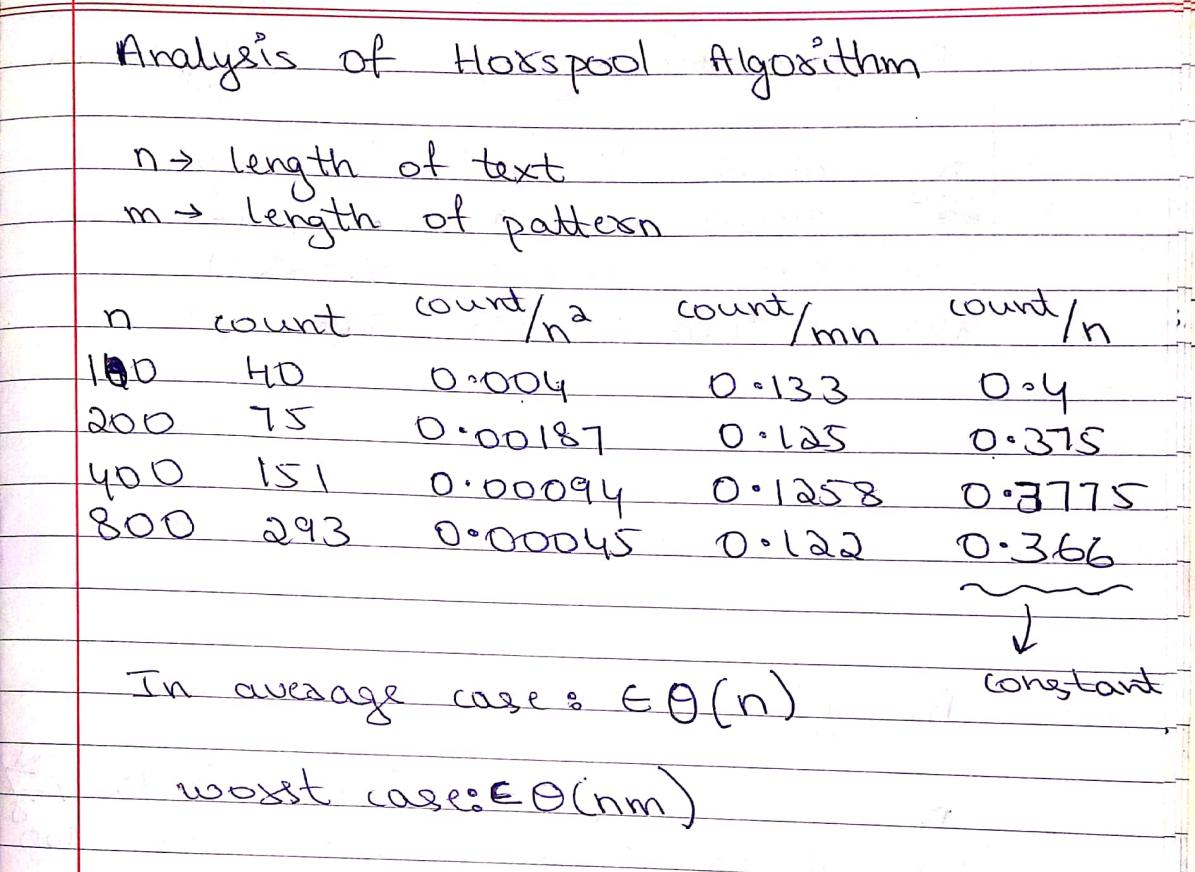 Analysis of Horspool Algorithm
n → length of text
m → length of pattern
n count count/n² count/mn count/n
100 40 0.004 0.133 0.4
200 75 0.00187 0.125 0.375
400 151 0.00094 0.1258 0.3775
800 293 0.00045 0.122 0.366
↓
constant
In average case: ∈ Θ(n)
worst case: ∈ Θ(nm)